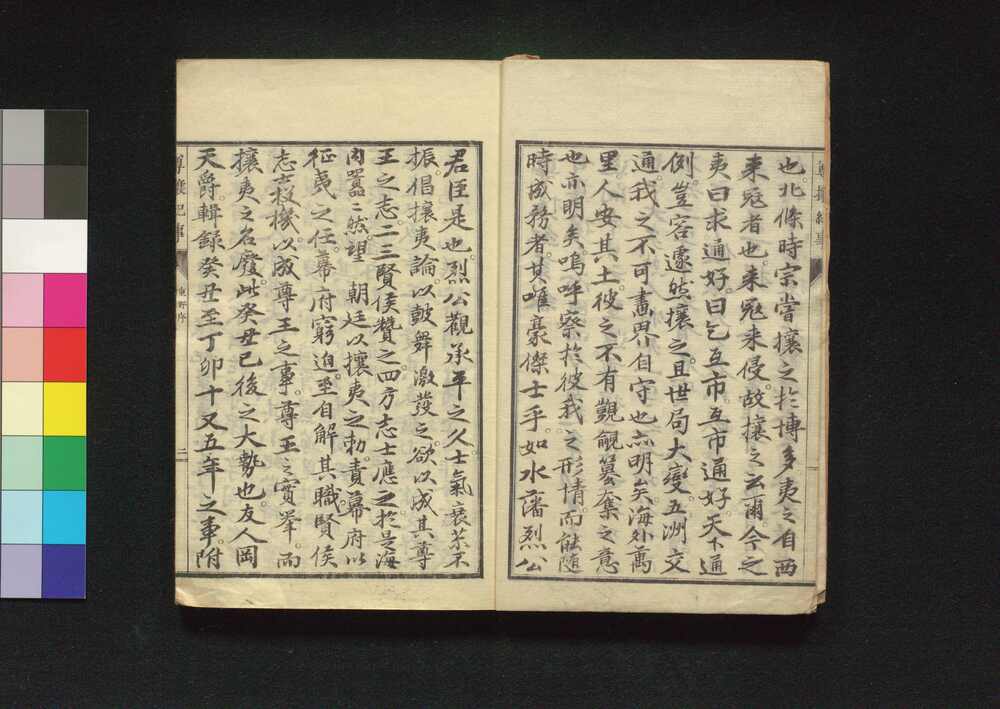 也。北條時宗嘗攘之於博多。夷之自西
來寇者也。来寇来侵。故攘之云爾。今之
夷曰求通好。曰乞互市。互市通好。天下通
例。豈容遽然攘之。且世局大變。五洲交
通。我之不可畫界自守也亦明矣。海外萬
里人安其土。彼之不有覬覦簒奪之意
也亦明矣。嗚呼察於彼我之形情。而能隨
時成務者。其唯豪傑士乎。如水藩烈公
君臣是也。烈公觀承平之久。士氣衰苶不
振。倡攘夷論。以鼓舞激發之。欲以成其尊
王之志。二三賢侯贊之。四方志士應之。於是海
内囂〻然望 朝廷以攘夷之勅。責幕府以
征夷之任。幕府窮迫。至自解其職。賢侯
志士投機。以成尊王之事。尊王之實舉。而
攘夷之名廢。此癸丑已後之大勢也。友人岡
天爵輯録癸丑至丁卯十又五年之事。附
尊攘紀事
東野序
二